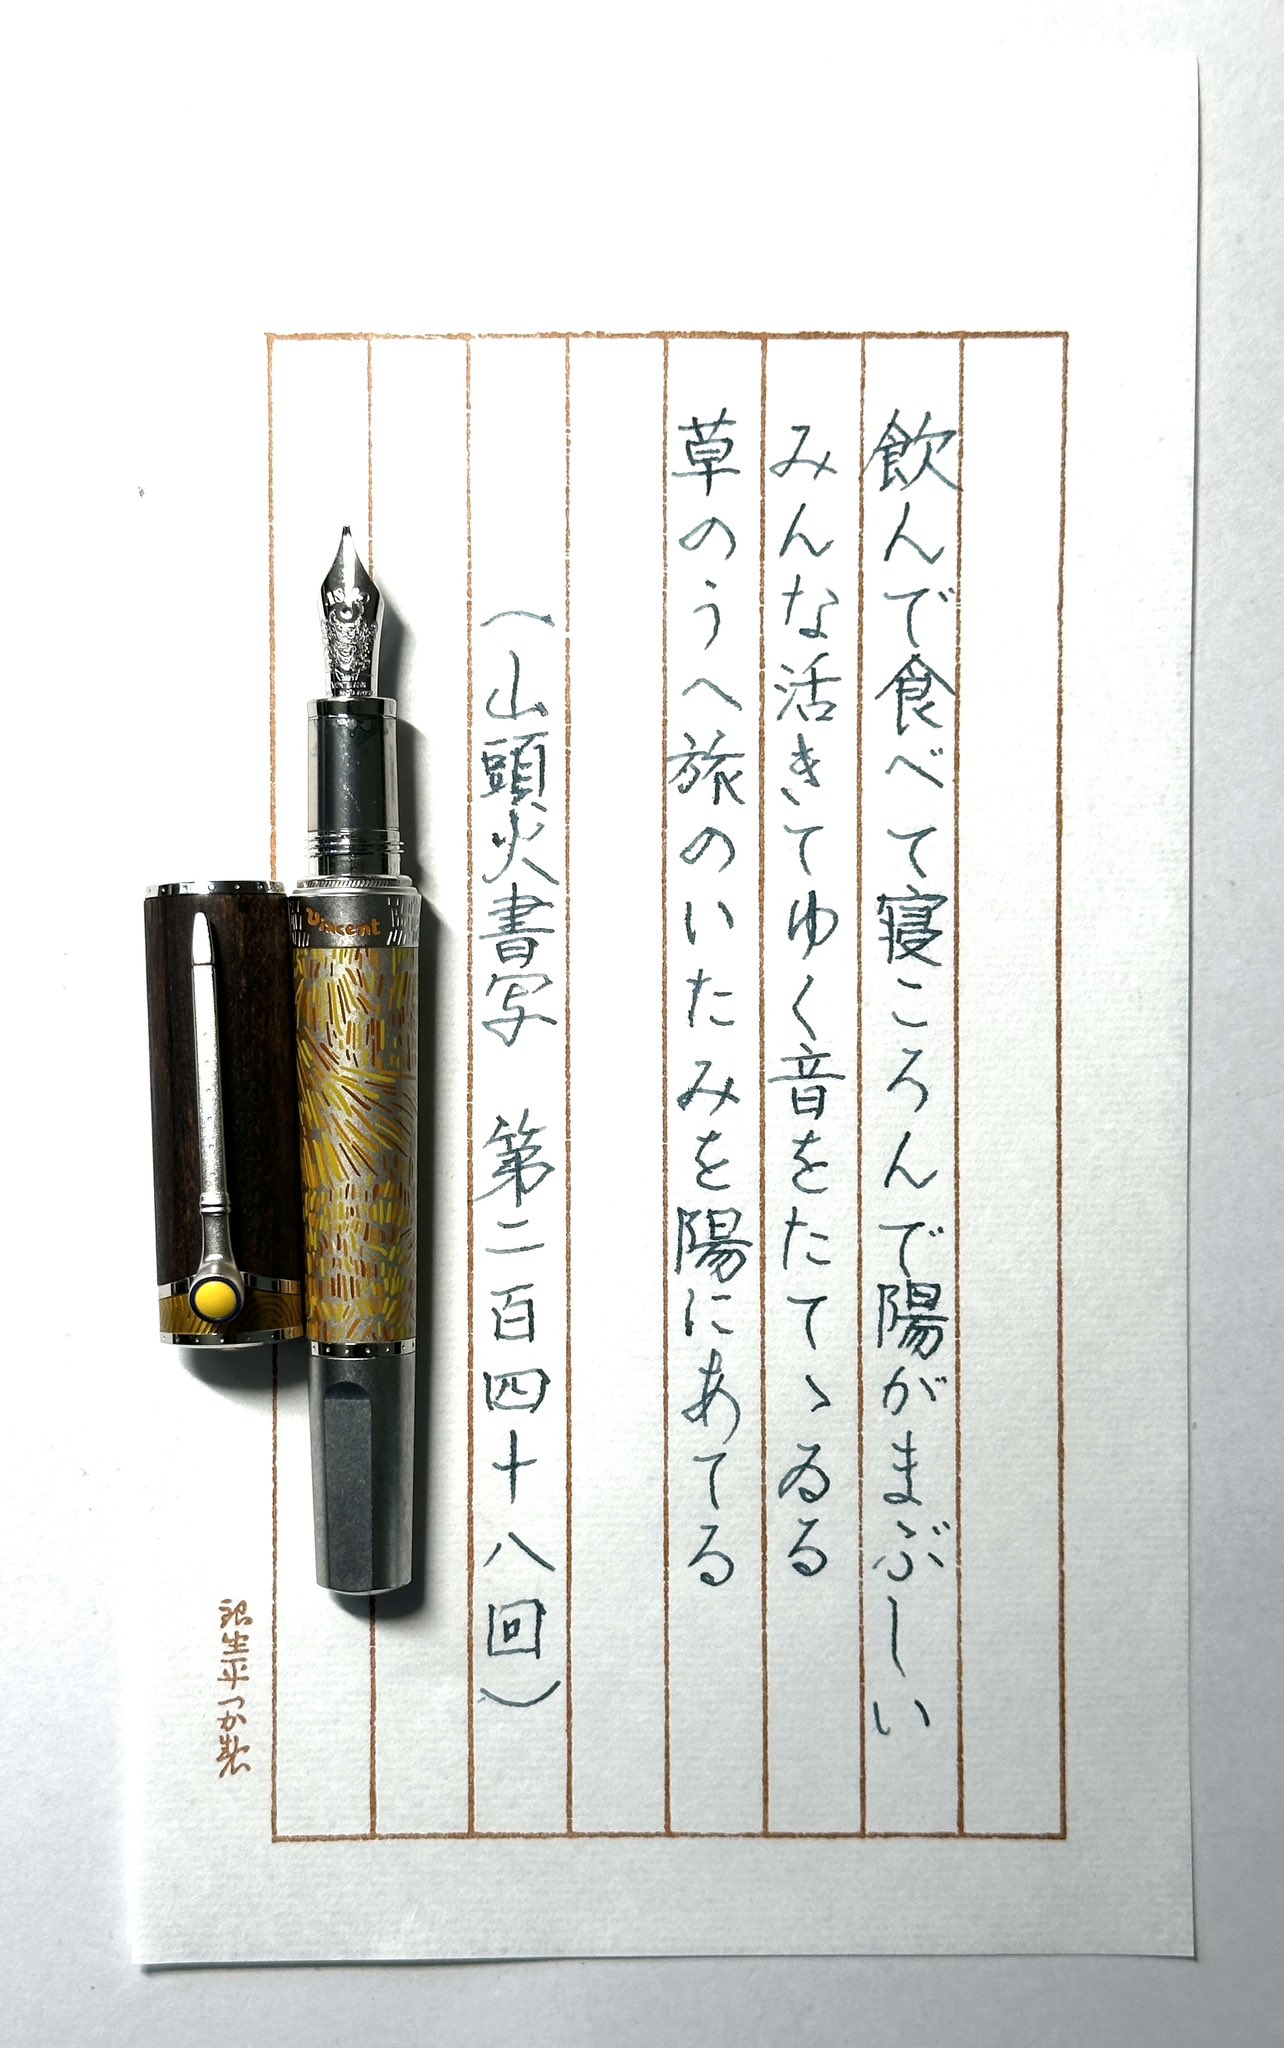 飲んで食べて寝ころんで陽がまぶしい
みんな活きてゆく音をたてゝゐる
草のうへ旅のいたみを陽にあてる
（山頭火書写　第二百四十八回）
Vincent